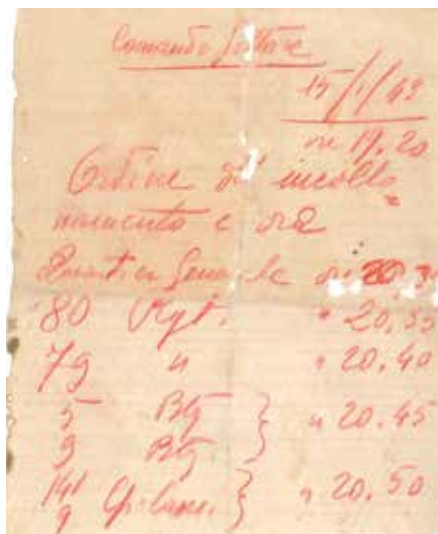 Comando Settore
15/1/43
ore 19,20
Ordine di incolla
namento e ora
Quartier Generale ore 20,30
80 Rgt. " 20,35
79 " " 20,40
5 Btg } " 20.45
9 Btg.
141
9 Cp. } " 20.50